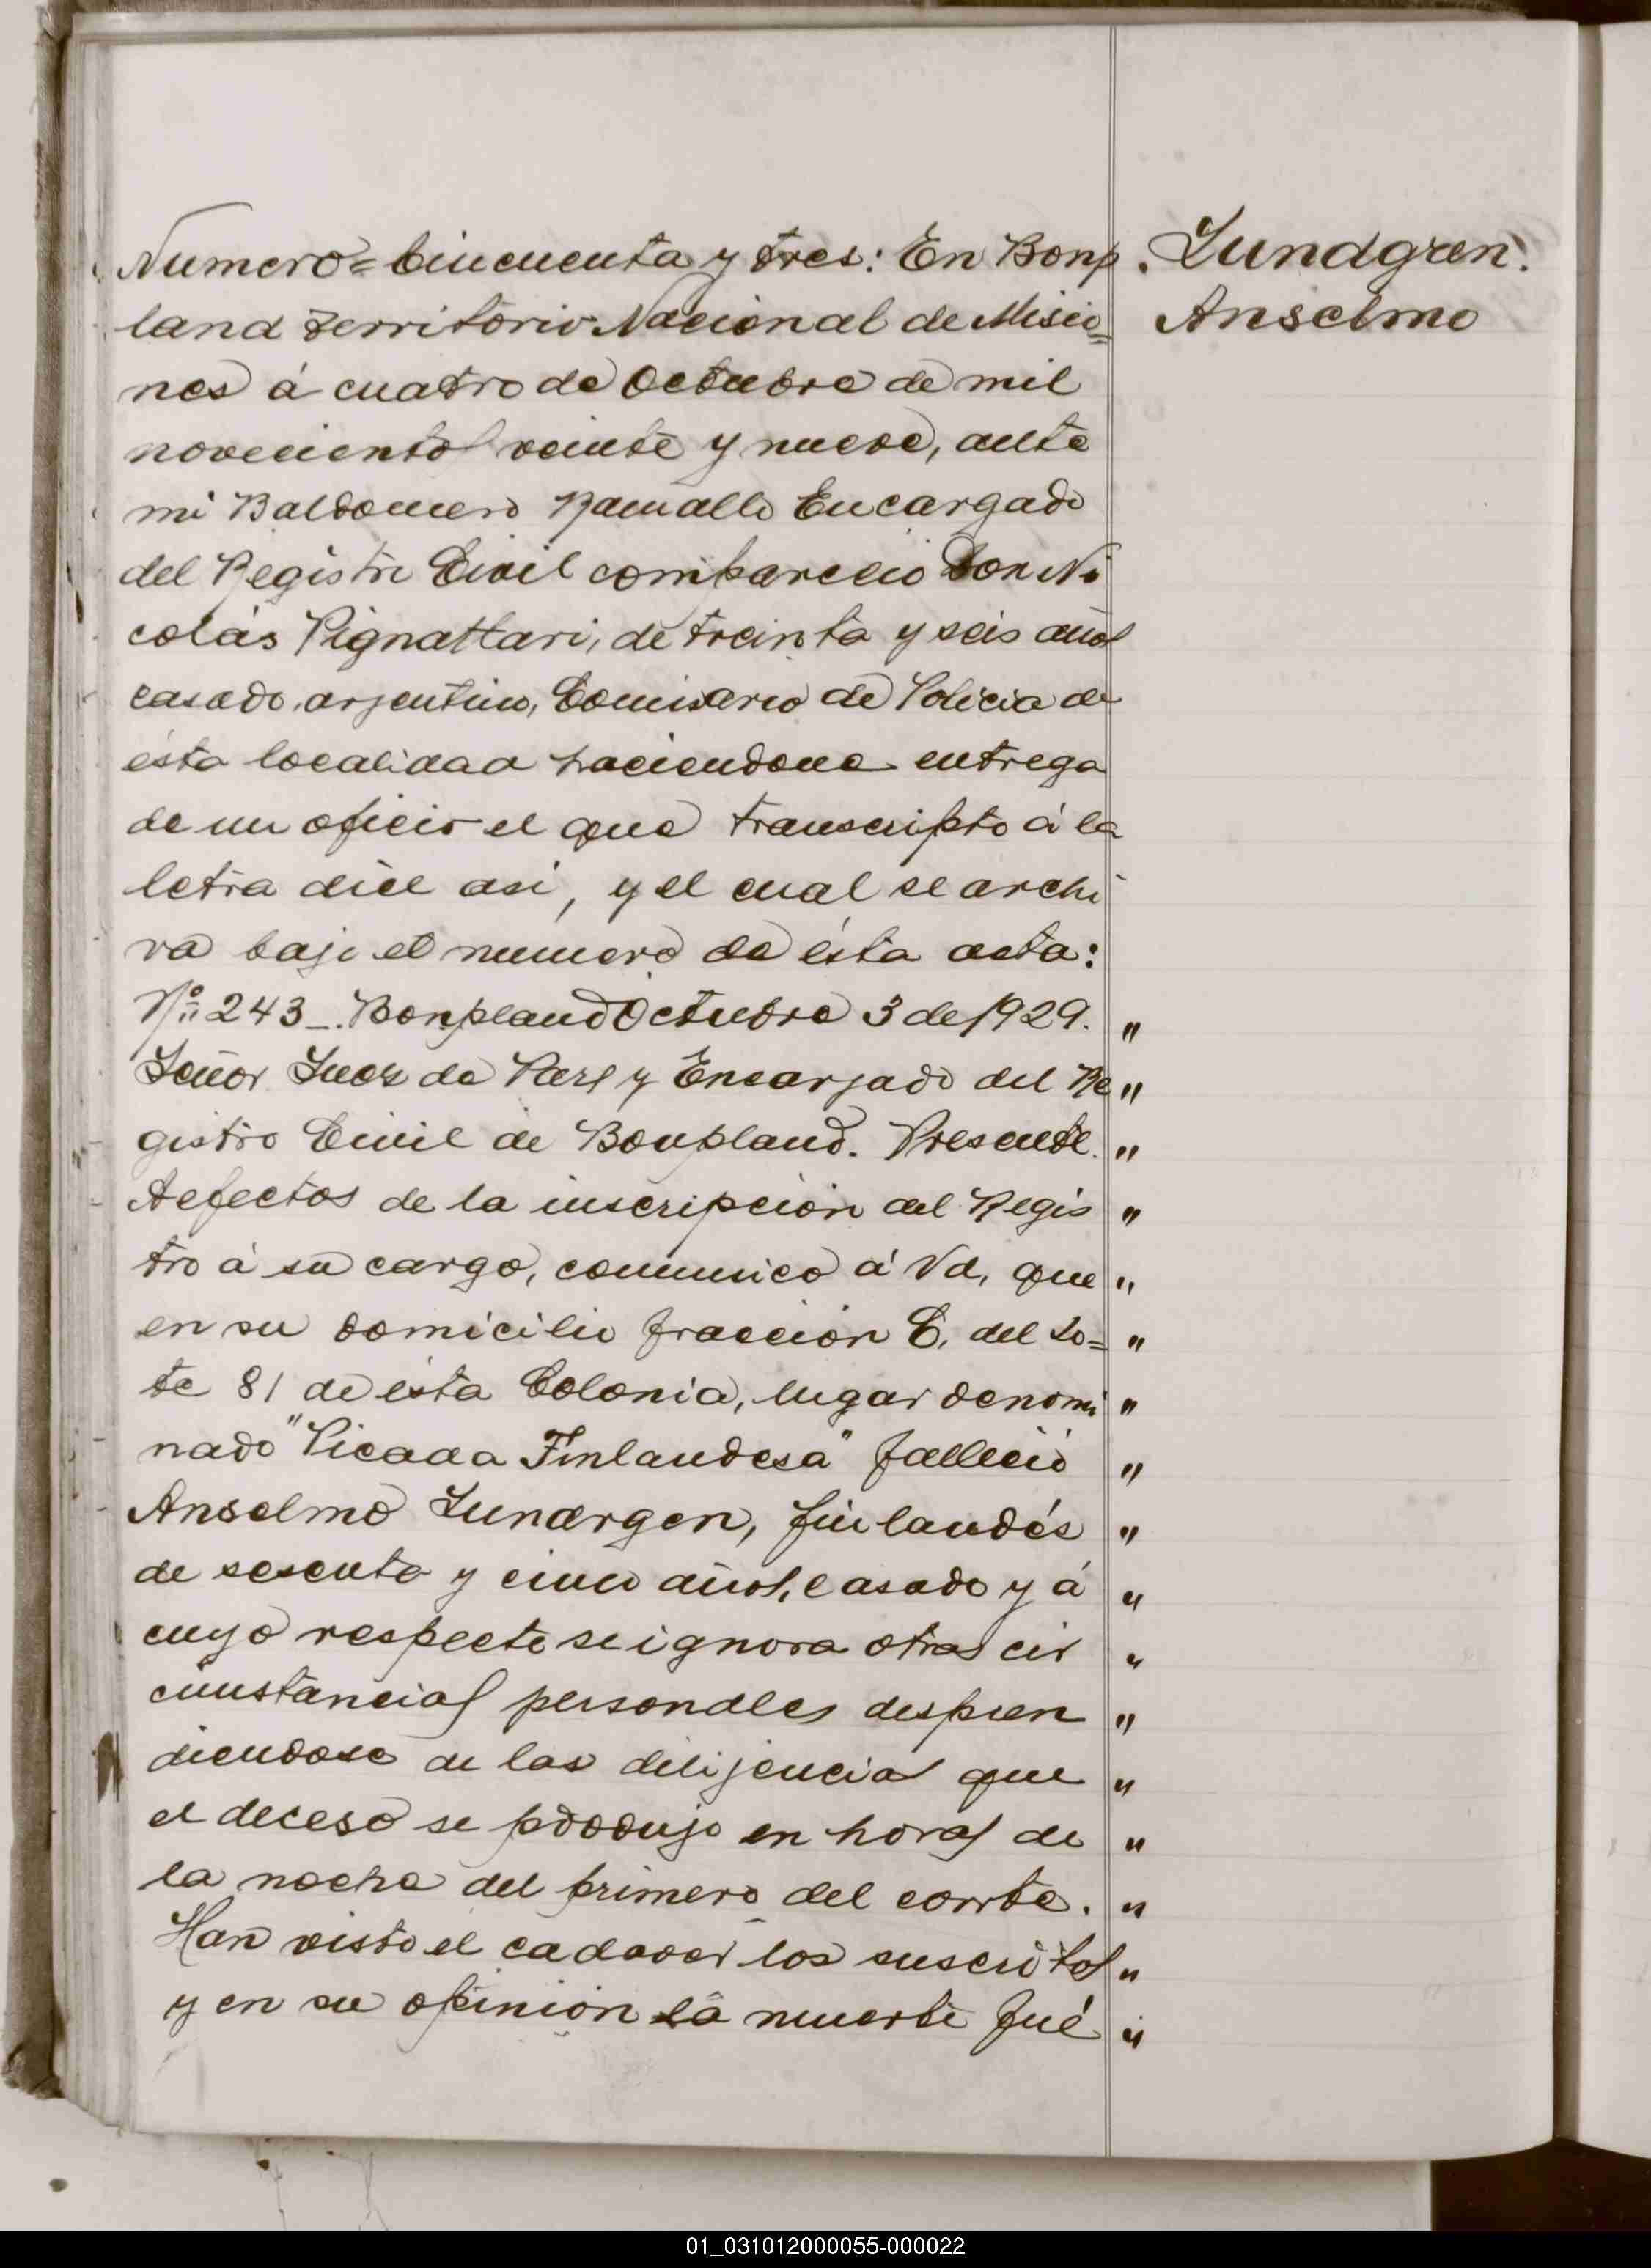 Numero = Cincuenta y tres: En Bonp
land Territorio Nacional de Misio=
nes á cuatro de Octubre de mil
novecientos veinte y nueve, ante
mi Baldomero Ramallo Encargado
del Registro Civil compareció Don Ni
colás Pignattari, de treinta y seis años
casado, argentino, Comisario de Policia de
ésta localidad haciendome entrega
de un oficio el que transcripto á la
letra dice asi, y el cual se archi
va bajo el numero de ésta acta:
Nº 243_. Bonpland Octubre 3 de 1929. "
Señor Juez de Paz y Encarjado del Re "
gistro Civil de Bonpland. Presente. "
A efectos de la inscripción del Regis "
tro á su cargo, comunico á Vd, que "
en su domicilio fracción C, del Lo= "
te 81 de ésta Colonia, lugar denomi "
nado "Picada Finlandesa" falleció "
Anselmo Lundrgen, finlandés "
de sesenta y cinco años, casado y á "
cuyo respecto se ignora otras cir "
cunstancias personales despren "
diendose de las dilijencias que "
el deceso se pdodujo en horas de "
la noche del primero del corrte. "
Han visto el cadaver los suscritos "
y en su opinión la muerte fué "
Lundgren.
Anselmo
01_031012000055-000022